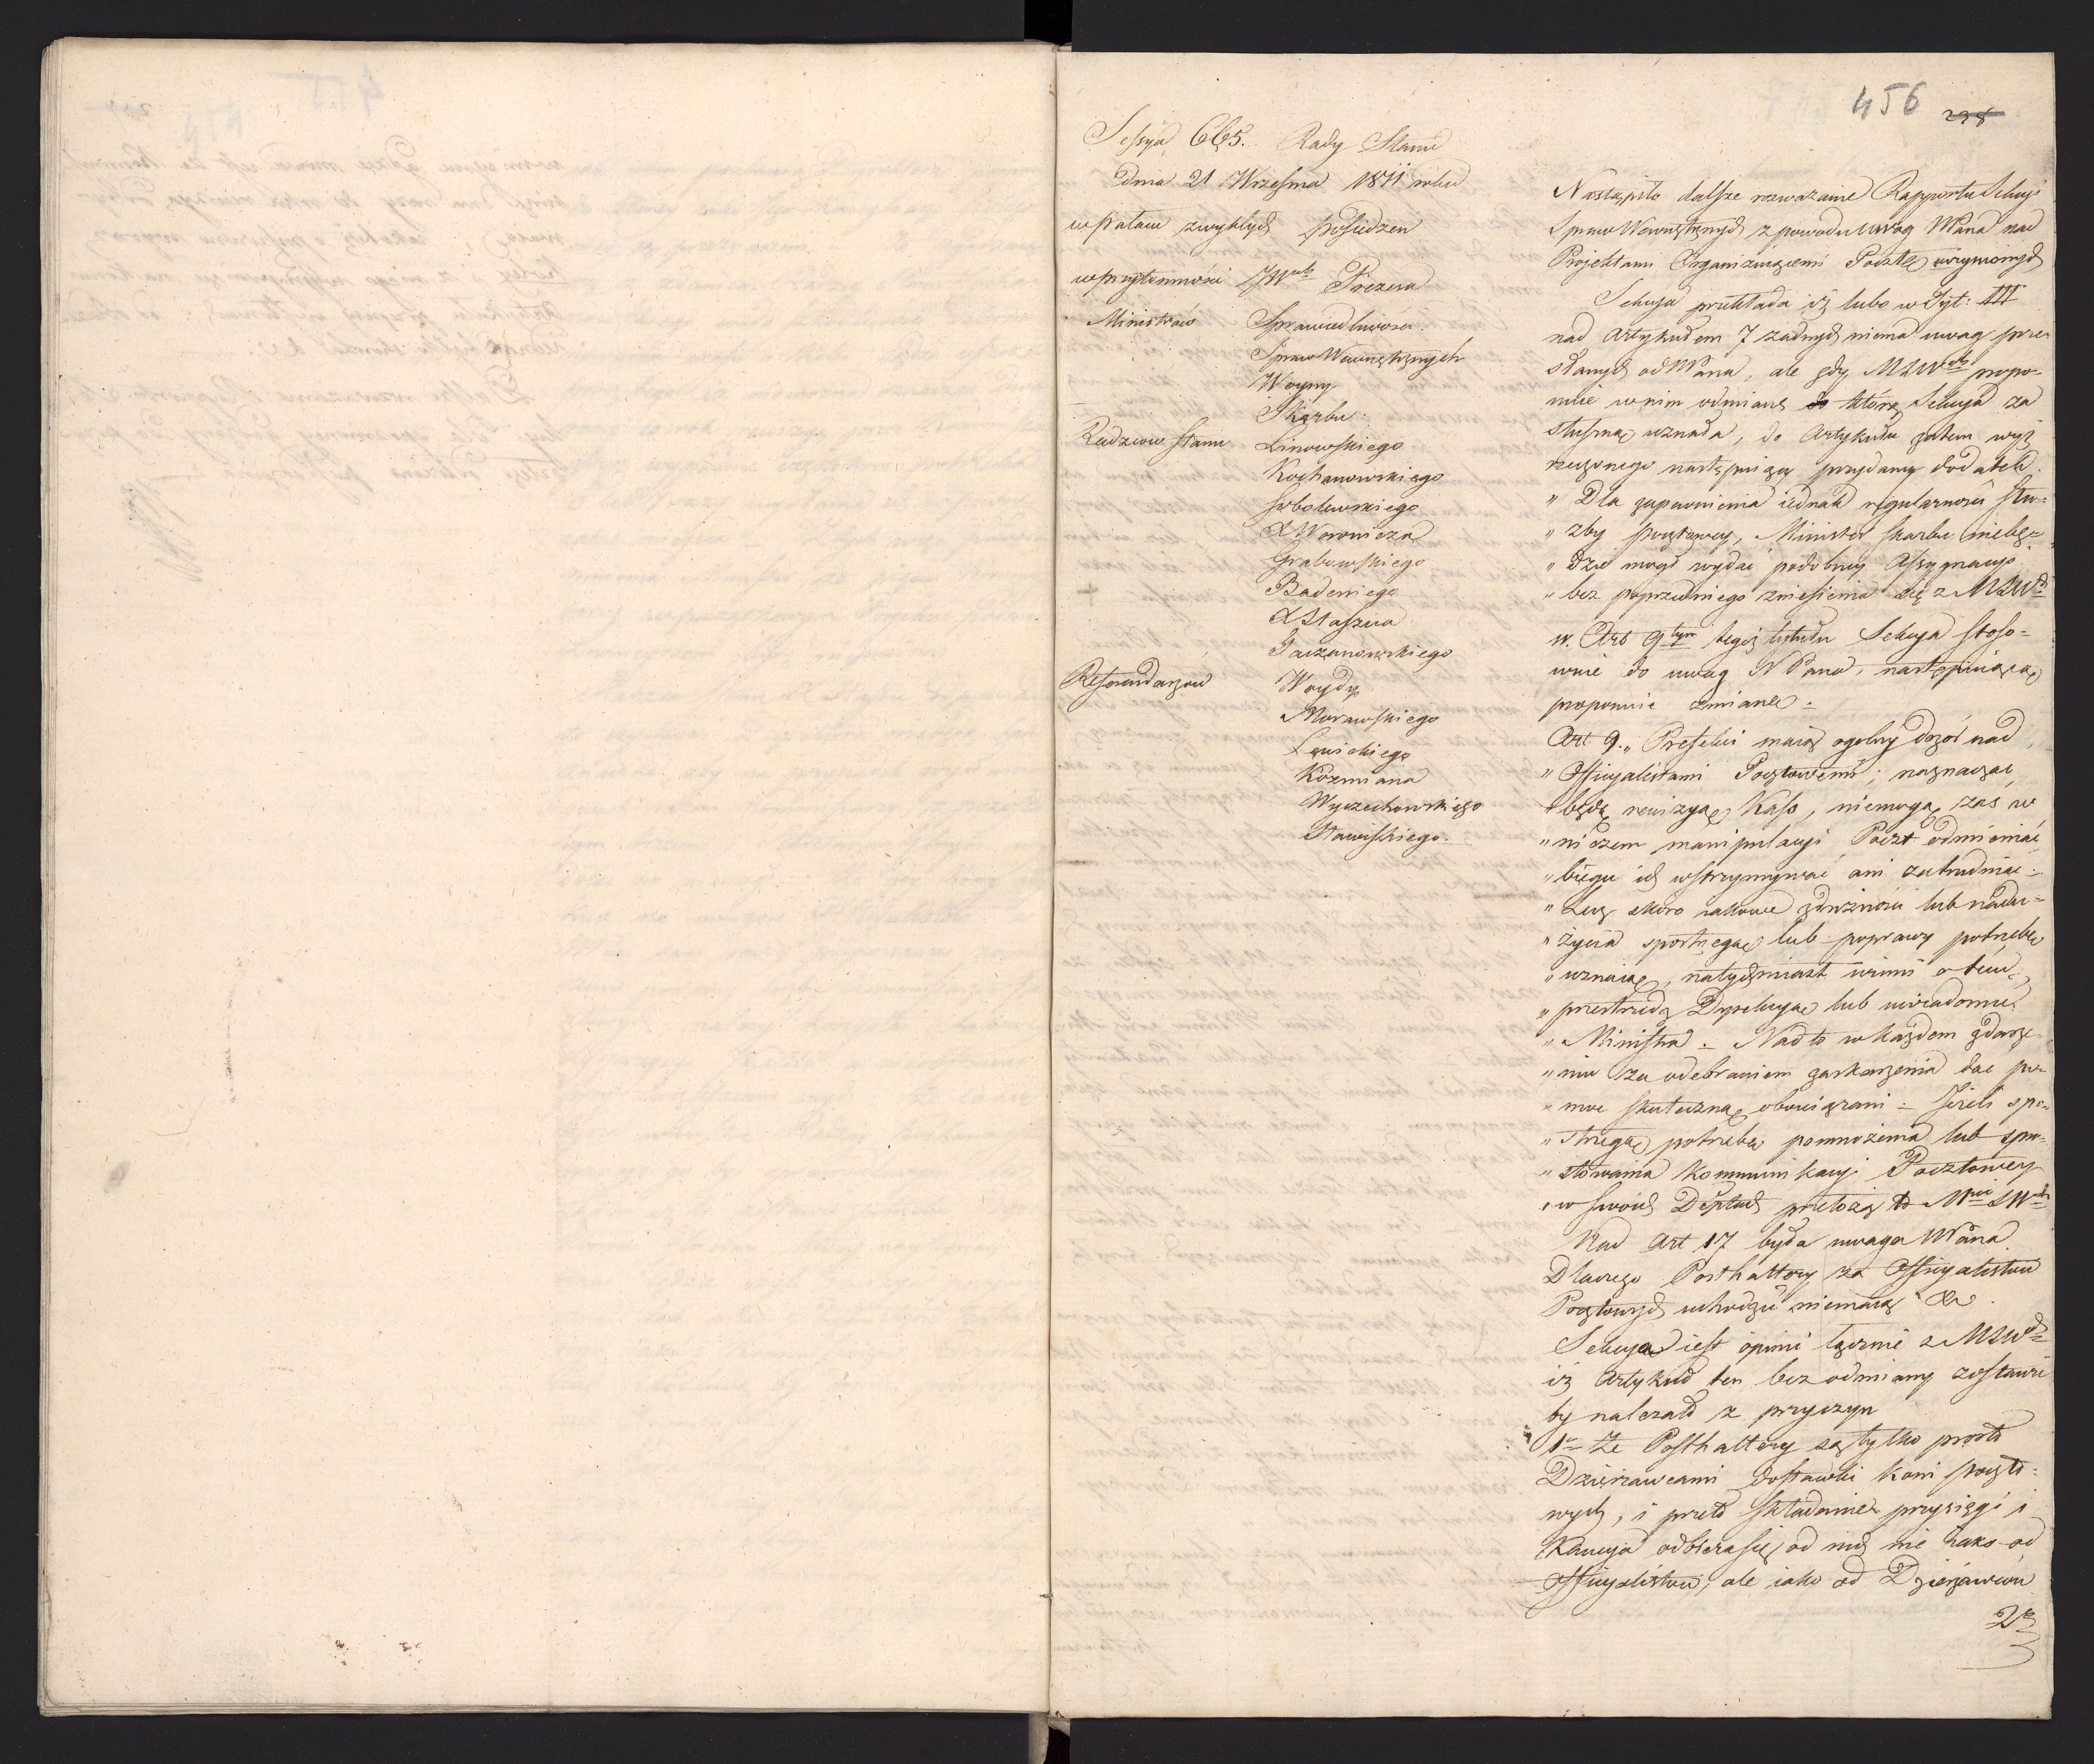 456 238
Sessya 665. Rady Stanu
Dnia 21 Wrzesnia 1811 roku
w Pałacu zwykłych posiedzeń
w przytomności JW Prezesa
Ministrów Sprawiedliwości.
Spraw Wewnętrznych
Woyny
Skarbu.
Radzców Stanu Linowskiego
Kochanowskiego
Sobolewskiego
X Woronicza
Grabowskiego
Badeniego
X Staszica
Gaczanowskiego
Referendarzów Woydy
Morawskiego
Łęuickiego
Kozmiana
Wyczechowskiego
Stawiskiego.
Nastąpiło dalsze rozważanie Rapportu Sekcyi
Spraw Wewnętrznych z powodu uwag NPana nad
Projektami Organizacyiemi Pocztę uczynionych
Sekcya przekłada iż lubo w Tyt: III
nad Artykułem 7 żadnych niema uwag prze
słanych od NPana, ale gdy MSWch propo-
nuie w nim odmianę którą Sekcya za
słuszną uznała, do Artykułu zatem wyż
rzeczonego następuiący przydany dodatek.
" Dla zapewnienia iednak regularności słu-
" żby pocztowey, Minister Skarbu niebę-
" dzie mogł wydać podobney Assygnacyi
" bez poprzedniego zniesienia się z MSWch
w. Art 9tym tegoż tytułu Sekcya stoso-
wnie do uwag NPana, następuiącą
proponuie zmianę.
Art 9. " Prefekci maią ogolny dozór nad
" Officyalistami Pocztowemi; naznaczać
" będą rewizyą Kass, niemogą zaś w
" niczem manipulacyi Poczt odmieniać
" biegu ich wstrzymywać ani zatrudniać.
" Lecz skoro iakowe zdrożności lub nadu-
" życia spostrzegą lub poprawy potrzebę
" uznaią, natychmiast winni o tem
" przestrzedz Dyrekcyą lub uwiadomić
" Ministra. Nadto w każdem zdarze-
" niu za odebraniem zaskarżenia dać po-
" moc skuteczną obowiązani. Jeżeli spo-
" strzegą potrzebę pomnożenia lub spro-
" stowania Kommunikacyi Pocztowey
" w swoich Deptach przełożą to Mwi SWch
Nad Art 17 była uwaga NPana
Dlaczego Posthaltery za Officyalistów
Pocztowych uchodzić niemaią &c.
Sekcya iest opinii łącznie z MSWch
iż Artykuł ten bez odmiany zostawić
by należało z przyczyn
1o Że Posthaltery są tylko prosto
Dzierżawcami dostawki koni poczto-
wych, i przeto składanie przysięgi i
Kaucya odbiera się od nich nie iako od
Officyalistów, ale iako od Dzierżawców
2o